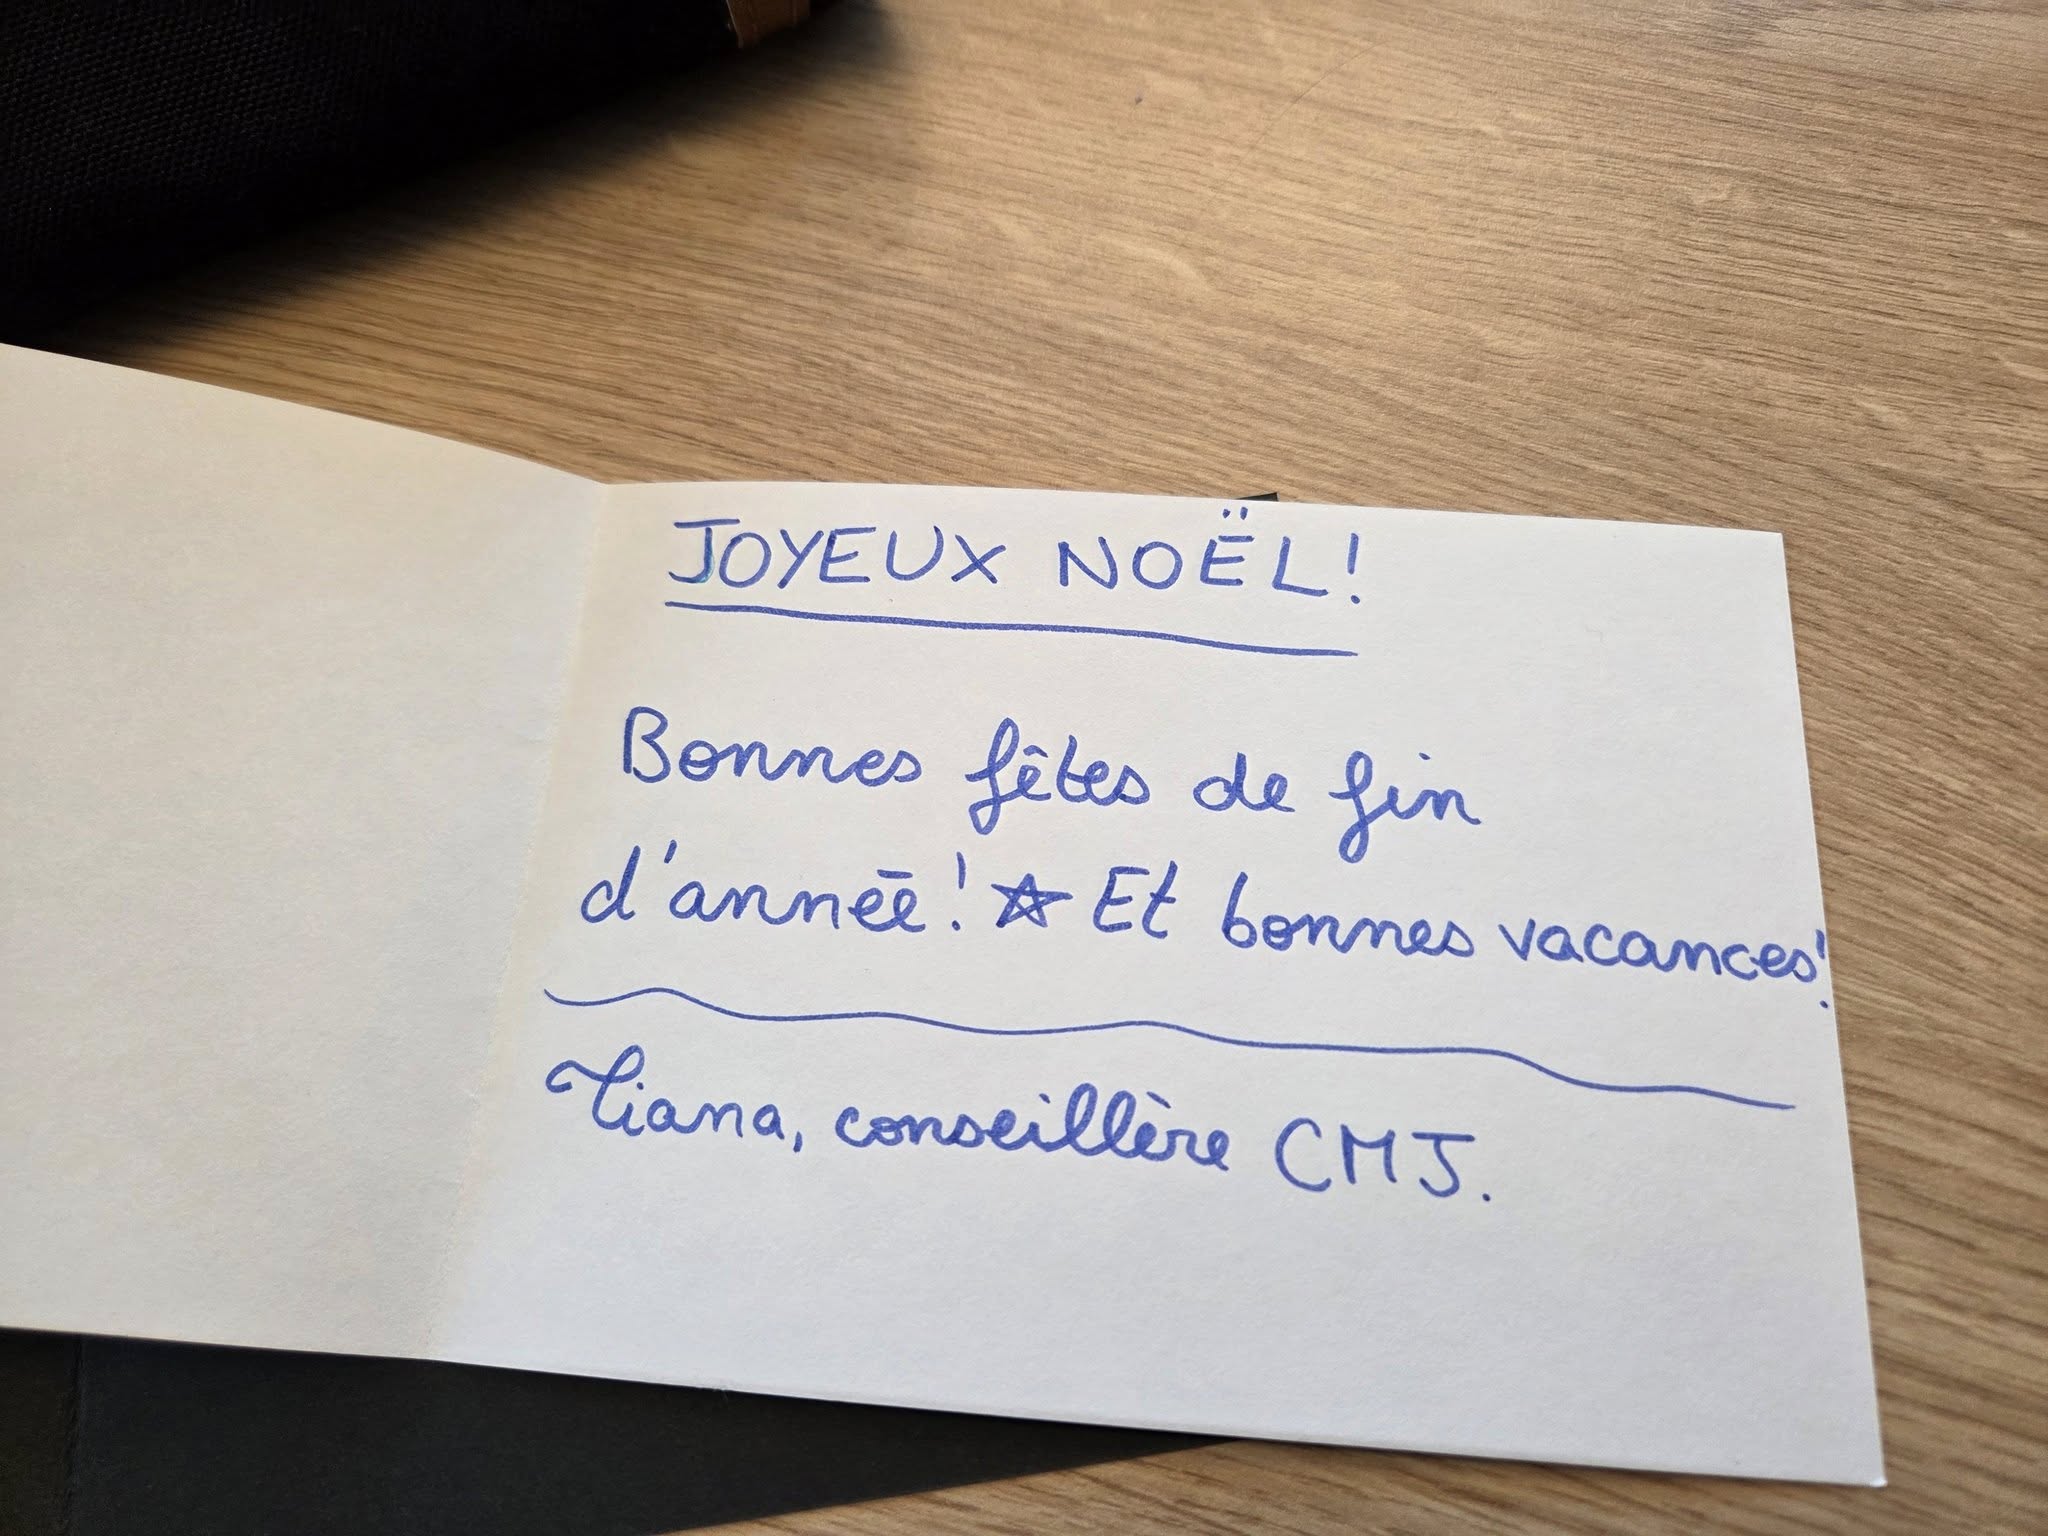 JOYEUX NOËL!
Bonnes fêtes de fin
d'année! ☆ Et bonnes vacances!
Tiana, conseillère CMJ.